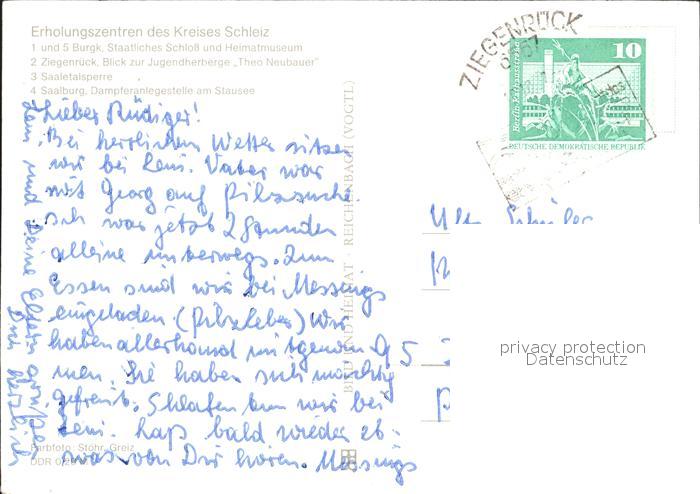 Erholungszentren des Kreises Schleiz
1 und 5 Burgk, Staatliches Schloß und Heimatmuseum
2 Ziegenrück, Blick zur Jugendherberge „Theo Neubauer"
3 Saaletalsperre
4 Saalburg, Dampferanlegestelle am Stausee
ZIEGENRÜCK
10
Berlin, Rathausstraße
DEUTSCHE DEMOKRATISCHE REPUBLIK
Lieber Rüdiger!
Bei herrlichem Wetter sitzen
wir bei Leni. Vater war
mit Georg auf Pilzsuche.
Ich war jetzt 2 Stunden
alleine unterwegs. Zum
Essen sind wir bei Messings
eingeladen (Pilzleber) Wir
haben allerhand mitgenom-
men. Sie haben sich mächtig
gefreut. Schlafen tun wir bei
Leni. Laß bald wieder et-
was von Dir hören. Messings
Leni und Deine Eltern grüßen
Dich herzlich
BILD UND HEIMAT · REICHENBACH (VOGTL)
Farbfoto: Stöhr, Greiz
DDR
95
privacy protection
Datenschutz